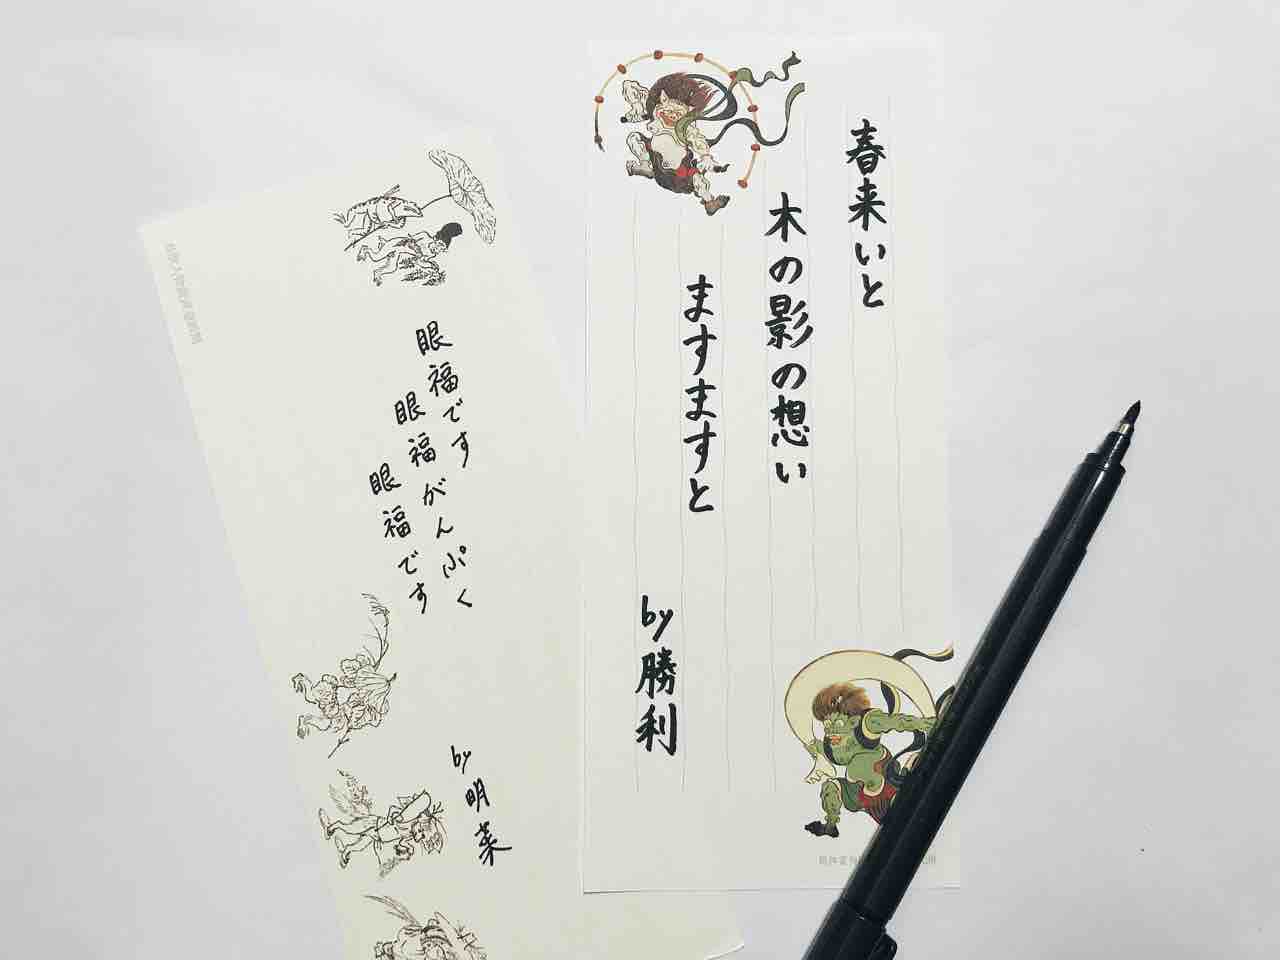 春来いと
木の影の想い
ますますと
by勝利
眼福です
眼福がんぷく
眼福です
by明菜